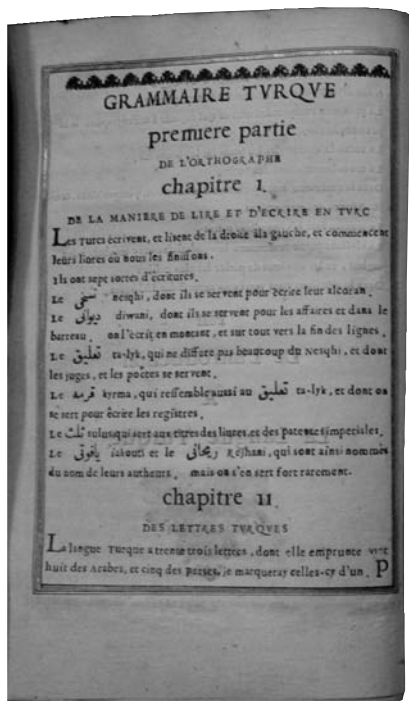 GRAMMAIRE TVRQVE
premiere partie
DE L'ORTHOGRAPHE
chapitre I.
DE LA MANIERE DE LIRE ET D'ECRIRE EN TVRC
Les Turcs écrivent, et lisent de la droite àla gauche, et commencent
leurs liures où nous les finissons.
Ils ont sept sortes d'écritures.
Le نسخى nesqhi, dont ils se servent pour écrire leur alcoran.
Le ديوانى diwani, dont ils se servent pour les affaires et dans le
barreau. on l'écrit en montant, et sur tout vers la fin des lignes.
Le تعليق ta-lyk, qui ne differe pas beaucoup du Nesqhi, et dont
les juges, et les poëtes se servent.
Le قرمه kyrma, qui ressemble aussi au تعليق ta-lyk, et dont on
se sert pour écrire les registres.
Le ثلث sulus qui sert aux titres des liures, et des patentes imperiales.
Le ياقوتى iakouti et le ريحانى Rejhani, qui sont ainsi nommés
du nom de leurs autheurs. mais on s'en sert fort rarement.
chapitre II
DES LETTRES TVRQVES
La langue Turque a trente trois lettres, dont elle emprunte vint
huit des Arabes, et cinq des perses, je marqueray celles-cy d'un. P